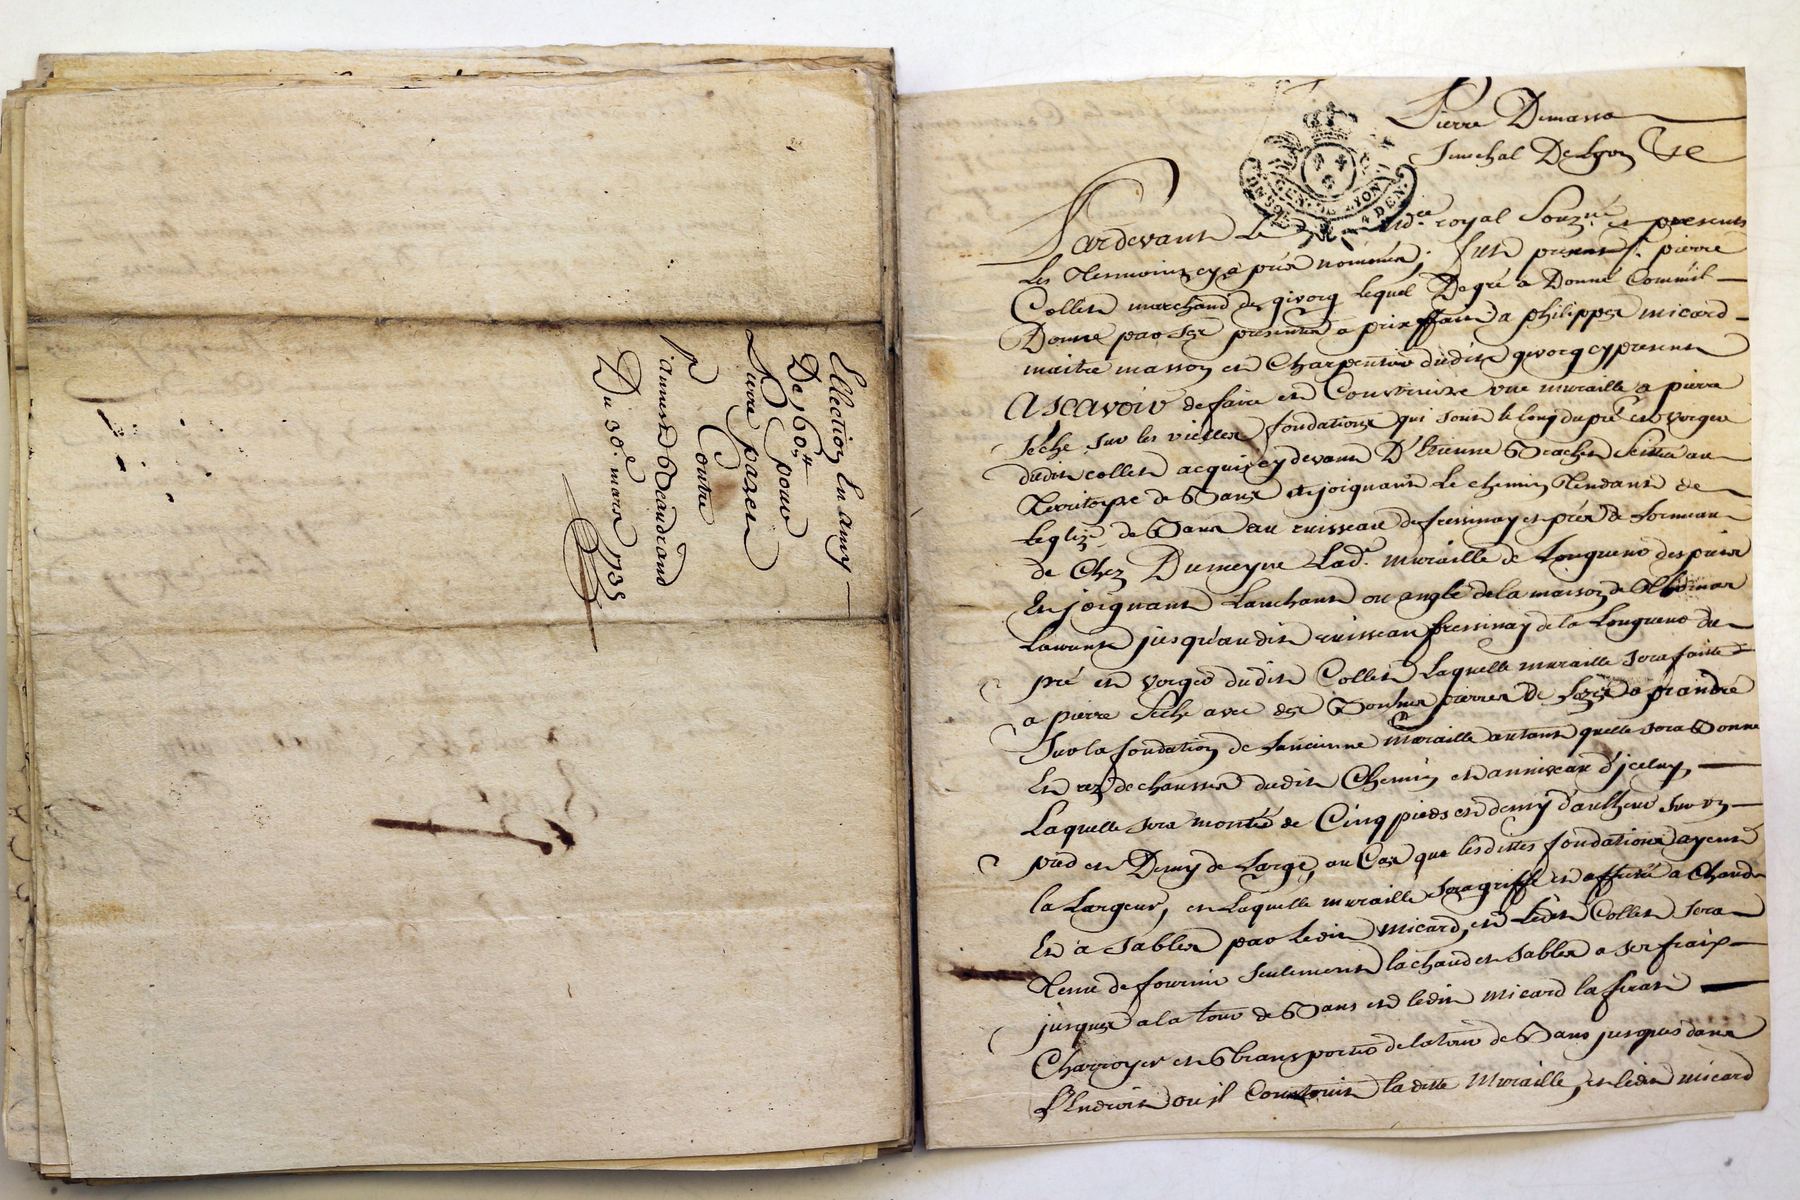 Ellection En amy
De 160ᵗᵗ pour
Pierre pazet
Contre
jannest Beaudrand
Du 30ᵉ. mars 1735
Pierre Dumassa
Senechal De Lyon
GEN. DE LYON
4 DEN.
Pardevant Le royal Souzné et presents
Les Temoins cy apres nommés, fut present Sr. pierre
Collet marchand de givorg lequel De gré a Donné Comm'il
Donne par ses presentes a prix faict a philippes micard
maitre masson et Charpentier dudit givorg cy present
Ascavoir de faire et Construire une muraille a pierre
seche sur les vieilles fondations qui sont le long du pré et verger
dudit collet acquis cy devant D'Etienne Brachet scittué au
Territoyre de Bans et joignant Le chemin Tendant de
Leglize de Bans au ruisseau de fressinay et près de
de Chez Dumeyne Lad. muraille de Longueur despuis
En joignant Lanchant ou angle de la maison de Thomas
Laurent jusqu'audit ruisseau fressinay de la Longueur du
pré et verger dudit Collet Laquelle muraille sera faitte
a pierre seche avec des Bonnes pierres de a prandre
Sur la fondation de Lancienne muraille autant quelle sera Bonne
En rez de chaussée dudit Chemin et anniveau d'jceluy,
Laquelle sera montée de Cinq pieds et demy d'aulheur sur un
pied et Demy de Large, au Cas que lesdittes fondations ayent
la Largeur, et Laquelle muraille sera griffé et a Chaud
Et a sables par ledit micard, et Ledit Collet sera
Tenu de fournir seulement la chaud et sables a ses fraix
jusques a la tour de Bans et ledit micard la ferat
Charroyer et transporter de la tour de Bans jusques dans
L'Endroit ou il Construit la ditte Muraille, et ledit micard